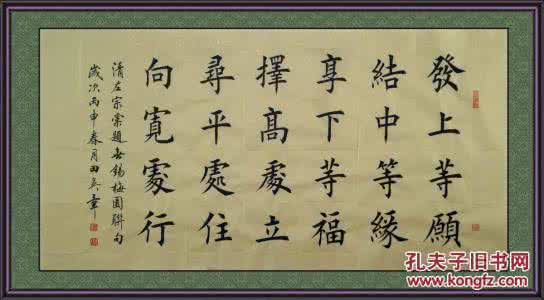 發上等願
結中等緣
享下等福
擇高處立
尋平處住
向寬處行
清左宗棠題無錫梅園聯句
歲次丙申春月田英章
孔夫子旧书网
www.kongfz.com